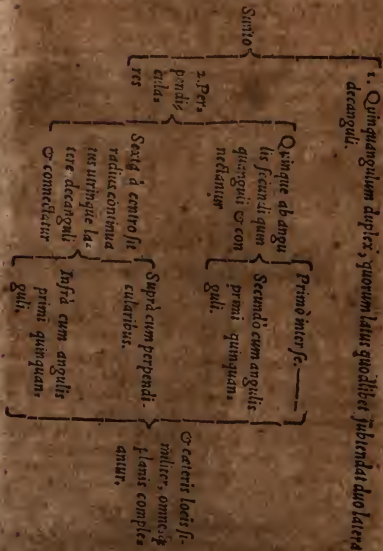 Sunto
1. Quinquangulum duplex, quorum latus quodlibet subtendat duo latera
decanguli.
2. Per-
pendi-
cula-
res
Quinque ab angu
lis secundi quin
quanguli & con
nectantur
Primò inter se.
Secundò cum angulis
primi quinquan-
guli.
Sexta à centro sit
radius continua
tus utrinque la-
tere decanguli
& connectatur
Suprà cum perpendi-
cularibus.
Infrà cum angulis
primi quinquan-
guli.
& cæteris locis si-
militer, omnesq;
planis comple-
antur.